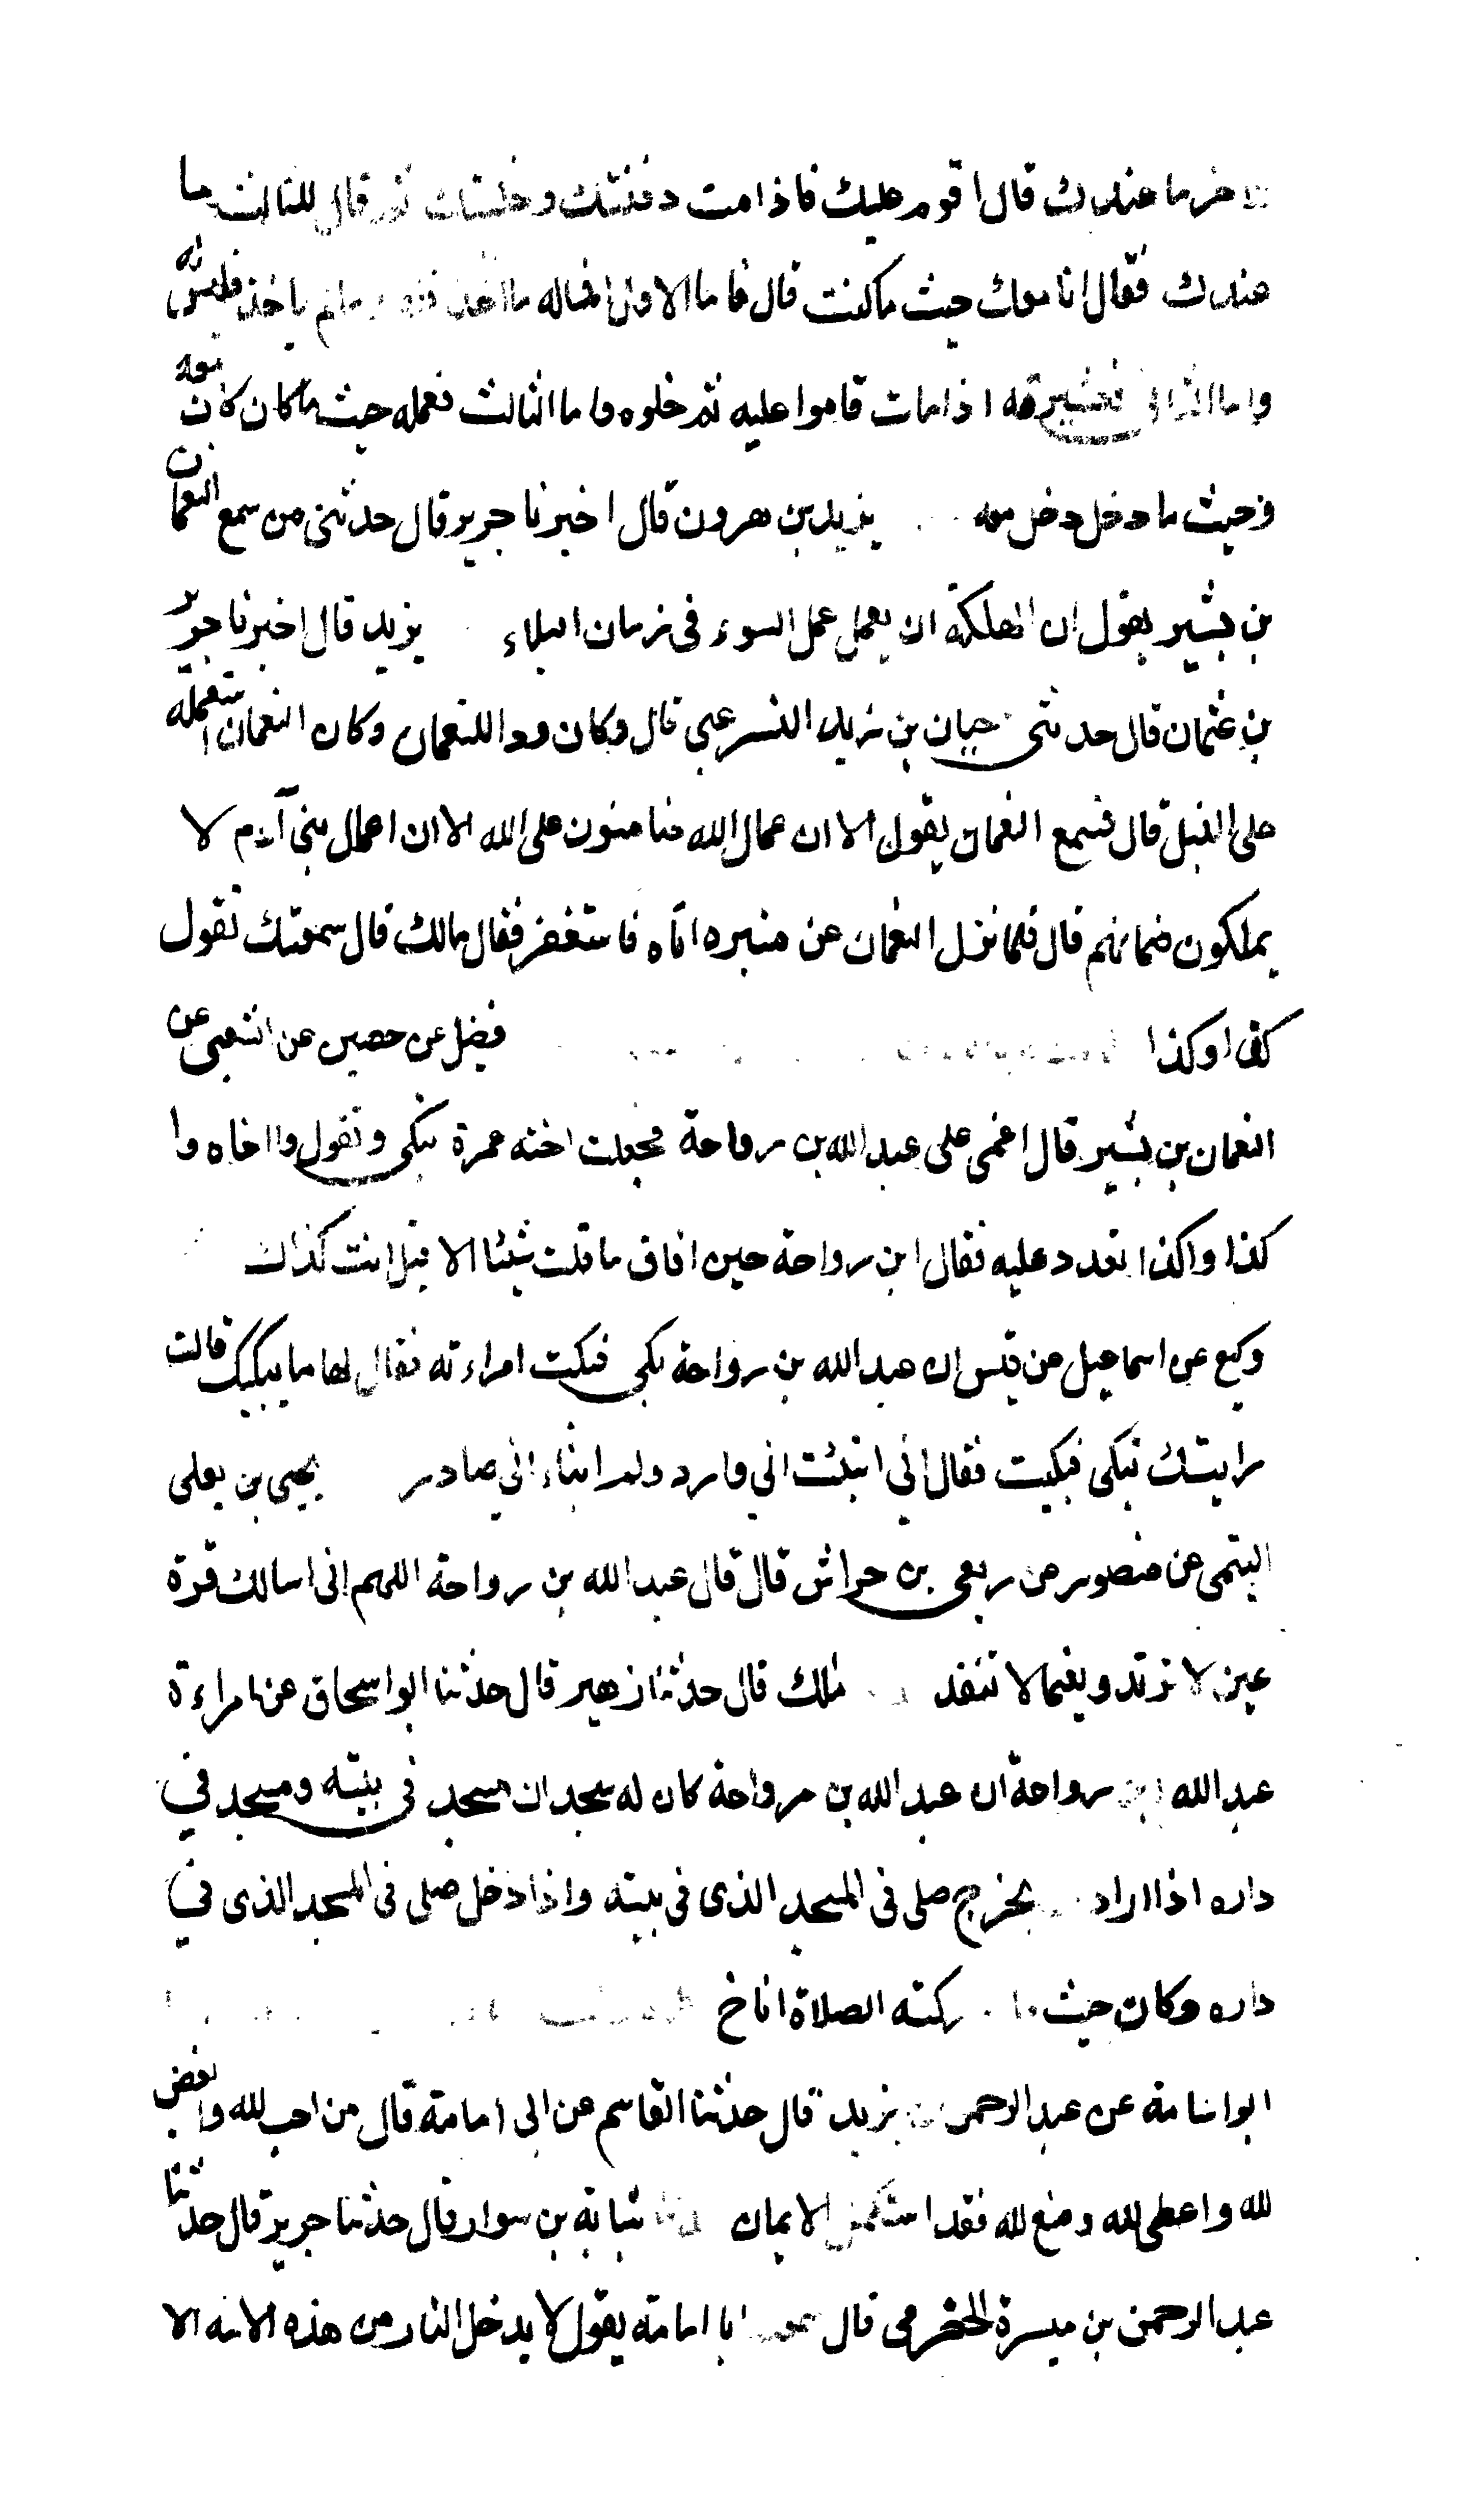 للاخر ما عندك قال اقوم عليك فاذا مت دفنتك وخليتك ثم قال للثالث ما
عندك فقال انا معك حيث ما كنت قال فاما الاول فماله ما اخذ فله وما لم ياخذ فليس له
واما الثاني فعشيرته اذا مات قاموا عليه ثم خلوه واما الثالث فعمله حيث ما كان كان معه
وحيث ما دخل دخل معه يزيد بن هرون قال اخبرنا جرير قال حدثني من سمع النعمان
بن بشير يقول ان الهلكة ان يعمل عمل السوء في زمان البلاء يزيد قال اخبرنا جرير
بن عثمان قال حدثني حيان بن زيد الشرعبي قال وكان ودا للنعمان وكان النعمان استعمله
على النبل قال فسمع النعمان يقول الا ان عمال الله ضامنون على الله الا ان اعمال بني آدم لا
يملكون ضمانهم قال فلما نزل النعمان عن منبره اتاه فاستغفر فقال مالك قال سمعتك تقول
كذا وكذا فضيل عن حصين عن الشعبي عن
النعمان بن بشير قال اغمي على عبد الله بن رواحة فجعلت اخته عمرة تبكي وتقول وااخاه وا
كذا واكذا تعدد عليه فقال ابن رواحة حين افاق ما قلت شيئا الا قيل انت كذاك
وكيع عن اسماعيل عن قيس ان عبد الله بن رواحة بكى فبكت امراءته فقال لها ما يبكيك قالت
رايتك تبكي فبكيت فقال اني انبئت اني وارد ولم انباء اني صادر يحيى بن يعلى
التيمي عن منصور عن ربعي بن حراش قال قال عبد الله بن رواحة اللهم اني اسالك قرة
عين لا ترتد ونعيما لا ينفد ملك قال حدثنا زهير قال حدثنا ابو اسحاق عن امراءة
عبد الله بن رواحة ان عبد الله بن رواحة كان له مسجدان مسجد في بيته ومسجد في
داره اذا اراد يخرج صلى في المسجد الذي في بيته واذا دخل صلى في المسجد الذي في
داره وكان حيث ما ركته الصلاة اناخ
ابو اسامة عن عبد الرحمن بن يزيد قال حدثنا القاسم عن ابي امامة قال من احب لله وابغض
لله واعطى لله ومنع لله فقد استكمل الايمان شبابة بن سوار قال حدثنا جرير قال حدثنا
عبد الرحمن بن ميسرة الحضرمي قال سمعت ابا امامة يقول لا يدخل النار من هذه الامة الا